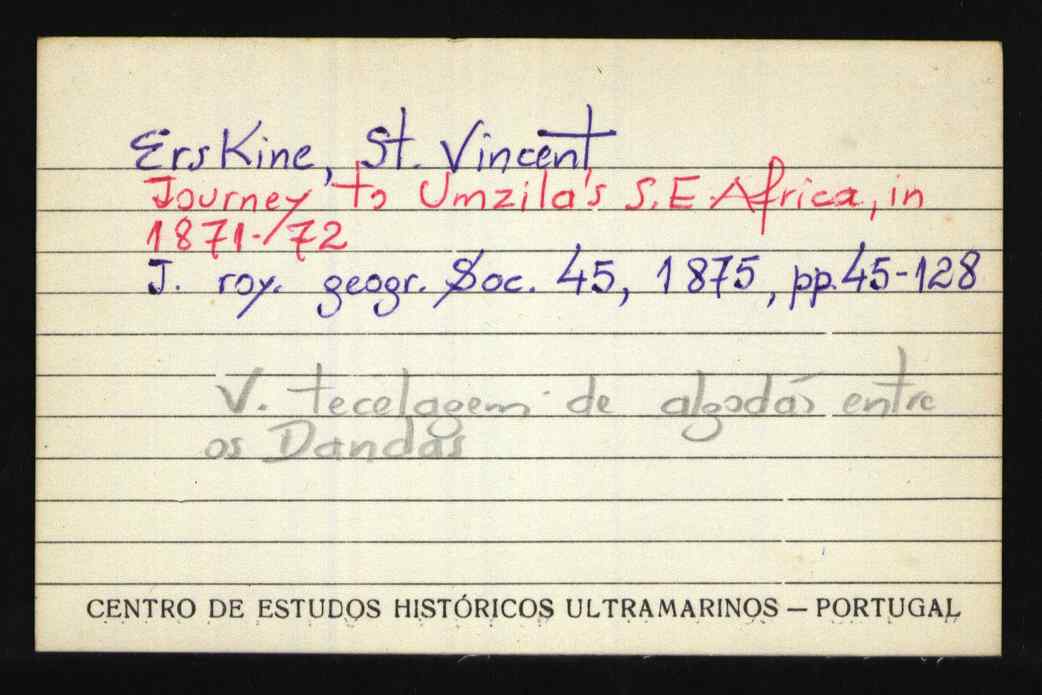 Erskine, St. Vincent
Journey to Umzila's S.E. Africa, in
1871-/72
J. roy. geogr. Soc. 45, 1875, pp. 45-128
V. tecelagem de algodão entre
os Dandas
CENTRO DE ESTUDOS HISTÓRICOS ULTRAMARINOS — PORTUGAL